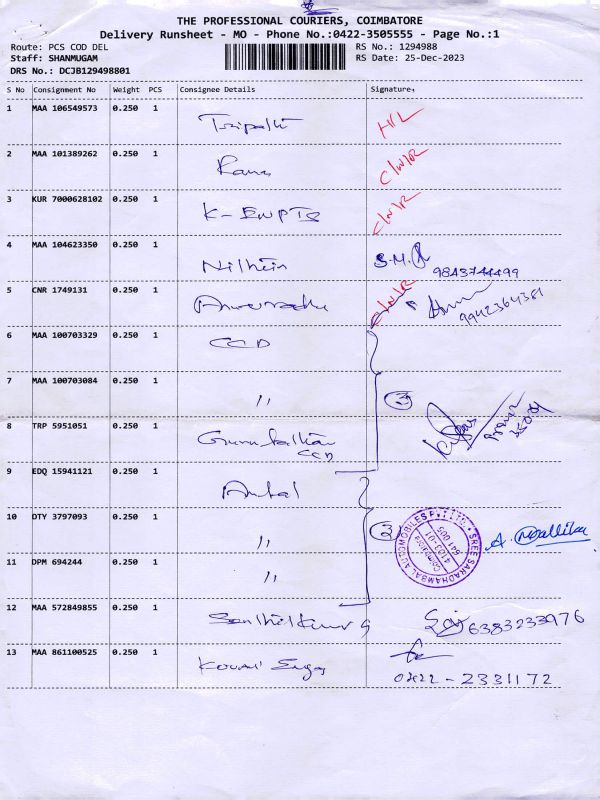 THE PROFESSIONAL COURIERS, COIMBATORE
Delivery Runsheet - MO - Phone No.:0422-3505555 - Page No.:1
Route: PCS COD DEL RS No.: 1294988
Staff: SHANMUGAM RS Date: 25-Dec-2023
DRS No.: DCJB129498801
S No Consignment No Weight PCS Consignee Details Signature
1 MAA 106549573 0.250 1 Tripathi
2 MAA 101389262 0.250 1 C/W/R
3 KUR 7000628102 0.250 1 C/W/R
4 MAA 104623350 0.250 1 S.M. 9843744499
5 CNR 1749131 0.250 1 C/W/R 9942364381
6 MAA 100703329 0.250 1 CCD
7 MAA 100703084 0.250 1 " 3
8 TRP 5951051 0.250 1 CCD
9 EDQ 15941121 0.250 1
10 DTY 3797093 1 " 3 SREE SARADHAMBAL AUTOMOBILES P LTD. Coimbatore 641 005 A. Mallika
11 DPM 694244 0.250 1 "
12 MAA 572849855 0.250 1 6383233976
13 MAA 861100525 0.250 1
0422-2331172